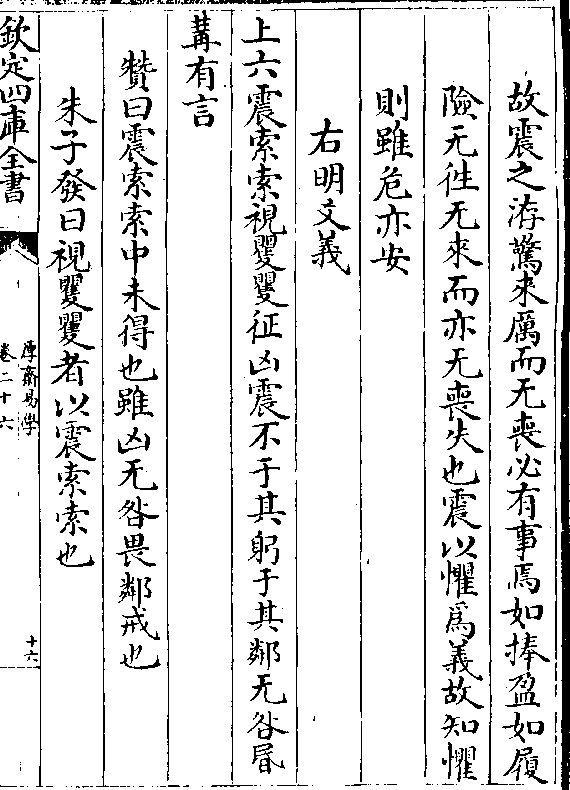 故震之洊驚來厲而无喪必有事焉如捧盈如履
險无徃无來而亦无喪失也震以懼為義故知懼
則雖危亦安
右明爻義
上六震索索視矍矍征凶震不于其躬于其鄰无咎㫝
冓有言
贊曰震索索中未得也雖凶无咎畏鄰戒也
朱子發曰視矍矍者以震索索也
欽定四庫全書
厚齋易學
卷二十六
十六